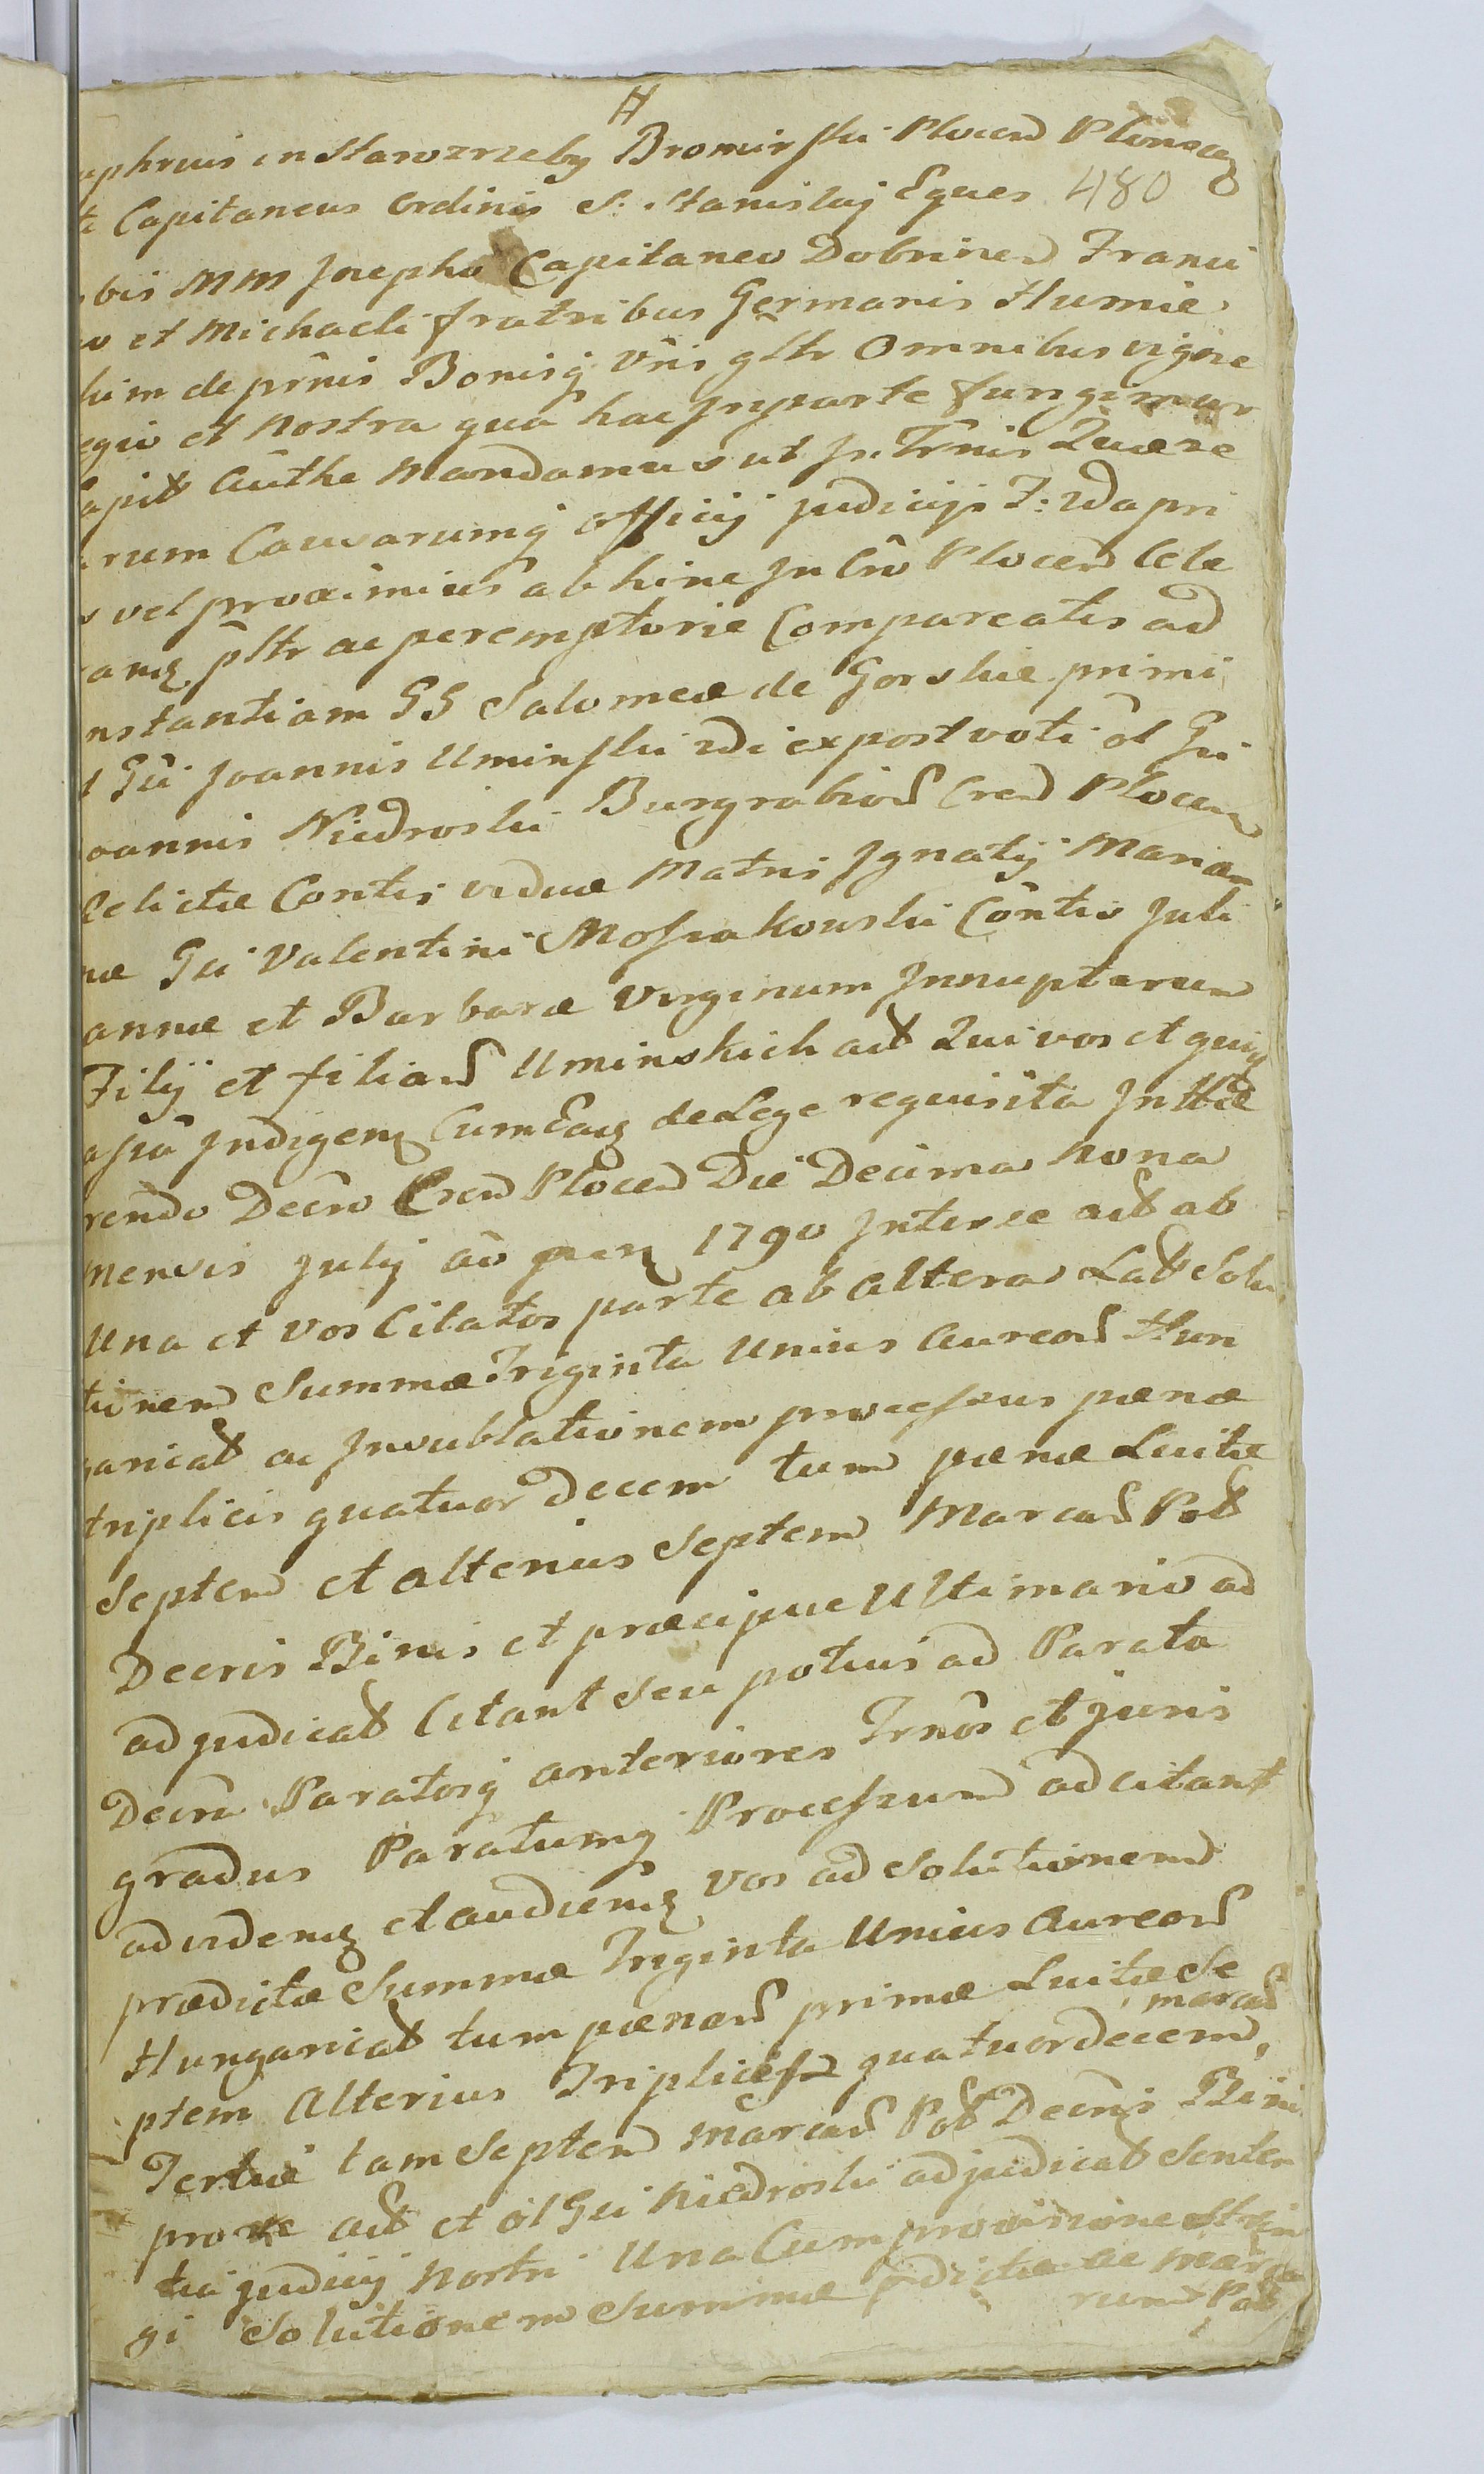 H
uphruis in Starozrzeby Bromirski Plocen Plonscq
Capitaneus Ordinis S: Stanislaj Eques 480
bis MM Josepho Capitaneo Dobrinen Franci
o et Michaeli fratribus Germanis Humie
him de prnis Bonisq Vris gltr Omnibus vigore
egio et Nostra qua hac Inparte fungimur
apit Authe Mandamus ut In Trnis Quære
rum Causarumq officij judicijs F: Wdapri
s vel proximius ab hinc In Crô Plocen Cele
anq pltr ac peremptorie Compareatis ad
nstantiam GG Salomeæ de Gorskie primi
t Gñi Joannis Uminski 2di expost voti ol Gñi
oannis Niedroski Burgrabiorum Cren Plocen
Relictæ Contis viduæ Matris Ignatij Marian
næ Gñi Valentini Mossakowski Contis Juli
annæ et Barbaræ Virginum Innuptarum
Filij et filiarum Uminskich act Qui vos et quiq
Indigenq Cum Eaq de Lege requisita
rendo Decrô Cren Plocen Die Decima Nona
Mensis Julij aô pren 1790 Inter se act ab
Una et vos Citatos parte ab altera Lat Solu
tionem Summæ Triginta Unius Aureorum Hun
garical ac Insublationem processus pænæ
triplicis quatuor Decem tum pænæ Luitæ
Septem et alterius Septem Marcarum Pol
Decris Binis et præcipue Ultimario ad
adjudicat Citant seu potius ad Parata
Decra Paratosq anteriores Trnôs et juris
gradus Paratumq Processum adcitant
advidenq et audienq vos ad Solutionem
prædictæ Summæ Triginta Unius Aureorum
Hungarical tum pænarum primæ Luitæ Se
ptem Alterius Triplicis quatuordecem, marcarum
Tertiæ tam Septem Marcarum Pol Decris Bini
pro act et ol Gñi Niedroski adjudicat Senten
tia judicij Nostri Una Cum provisione
gi Solutionem Summæ pdictæ ac Marca
rum Pol